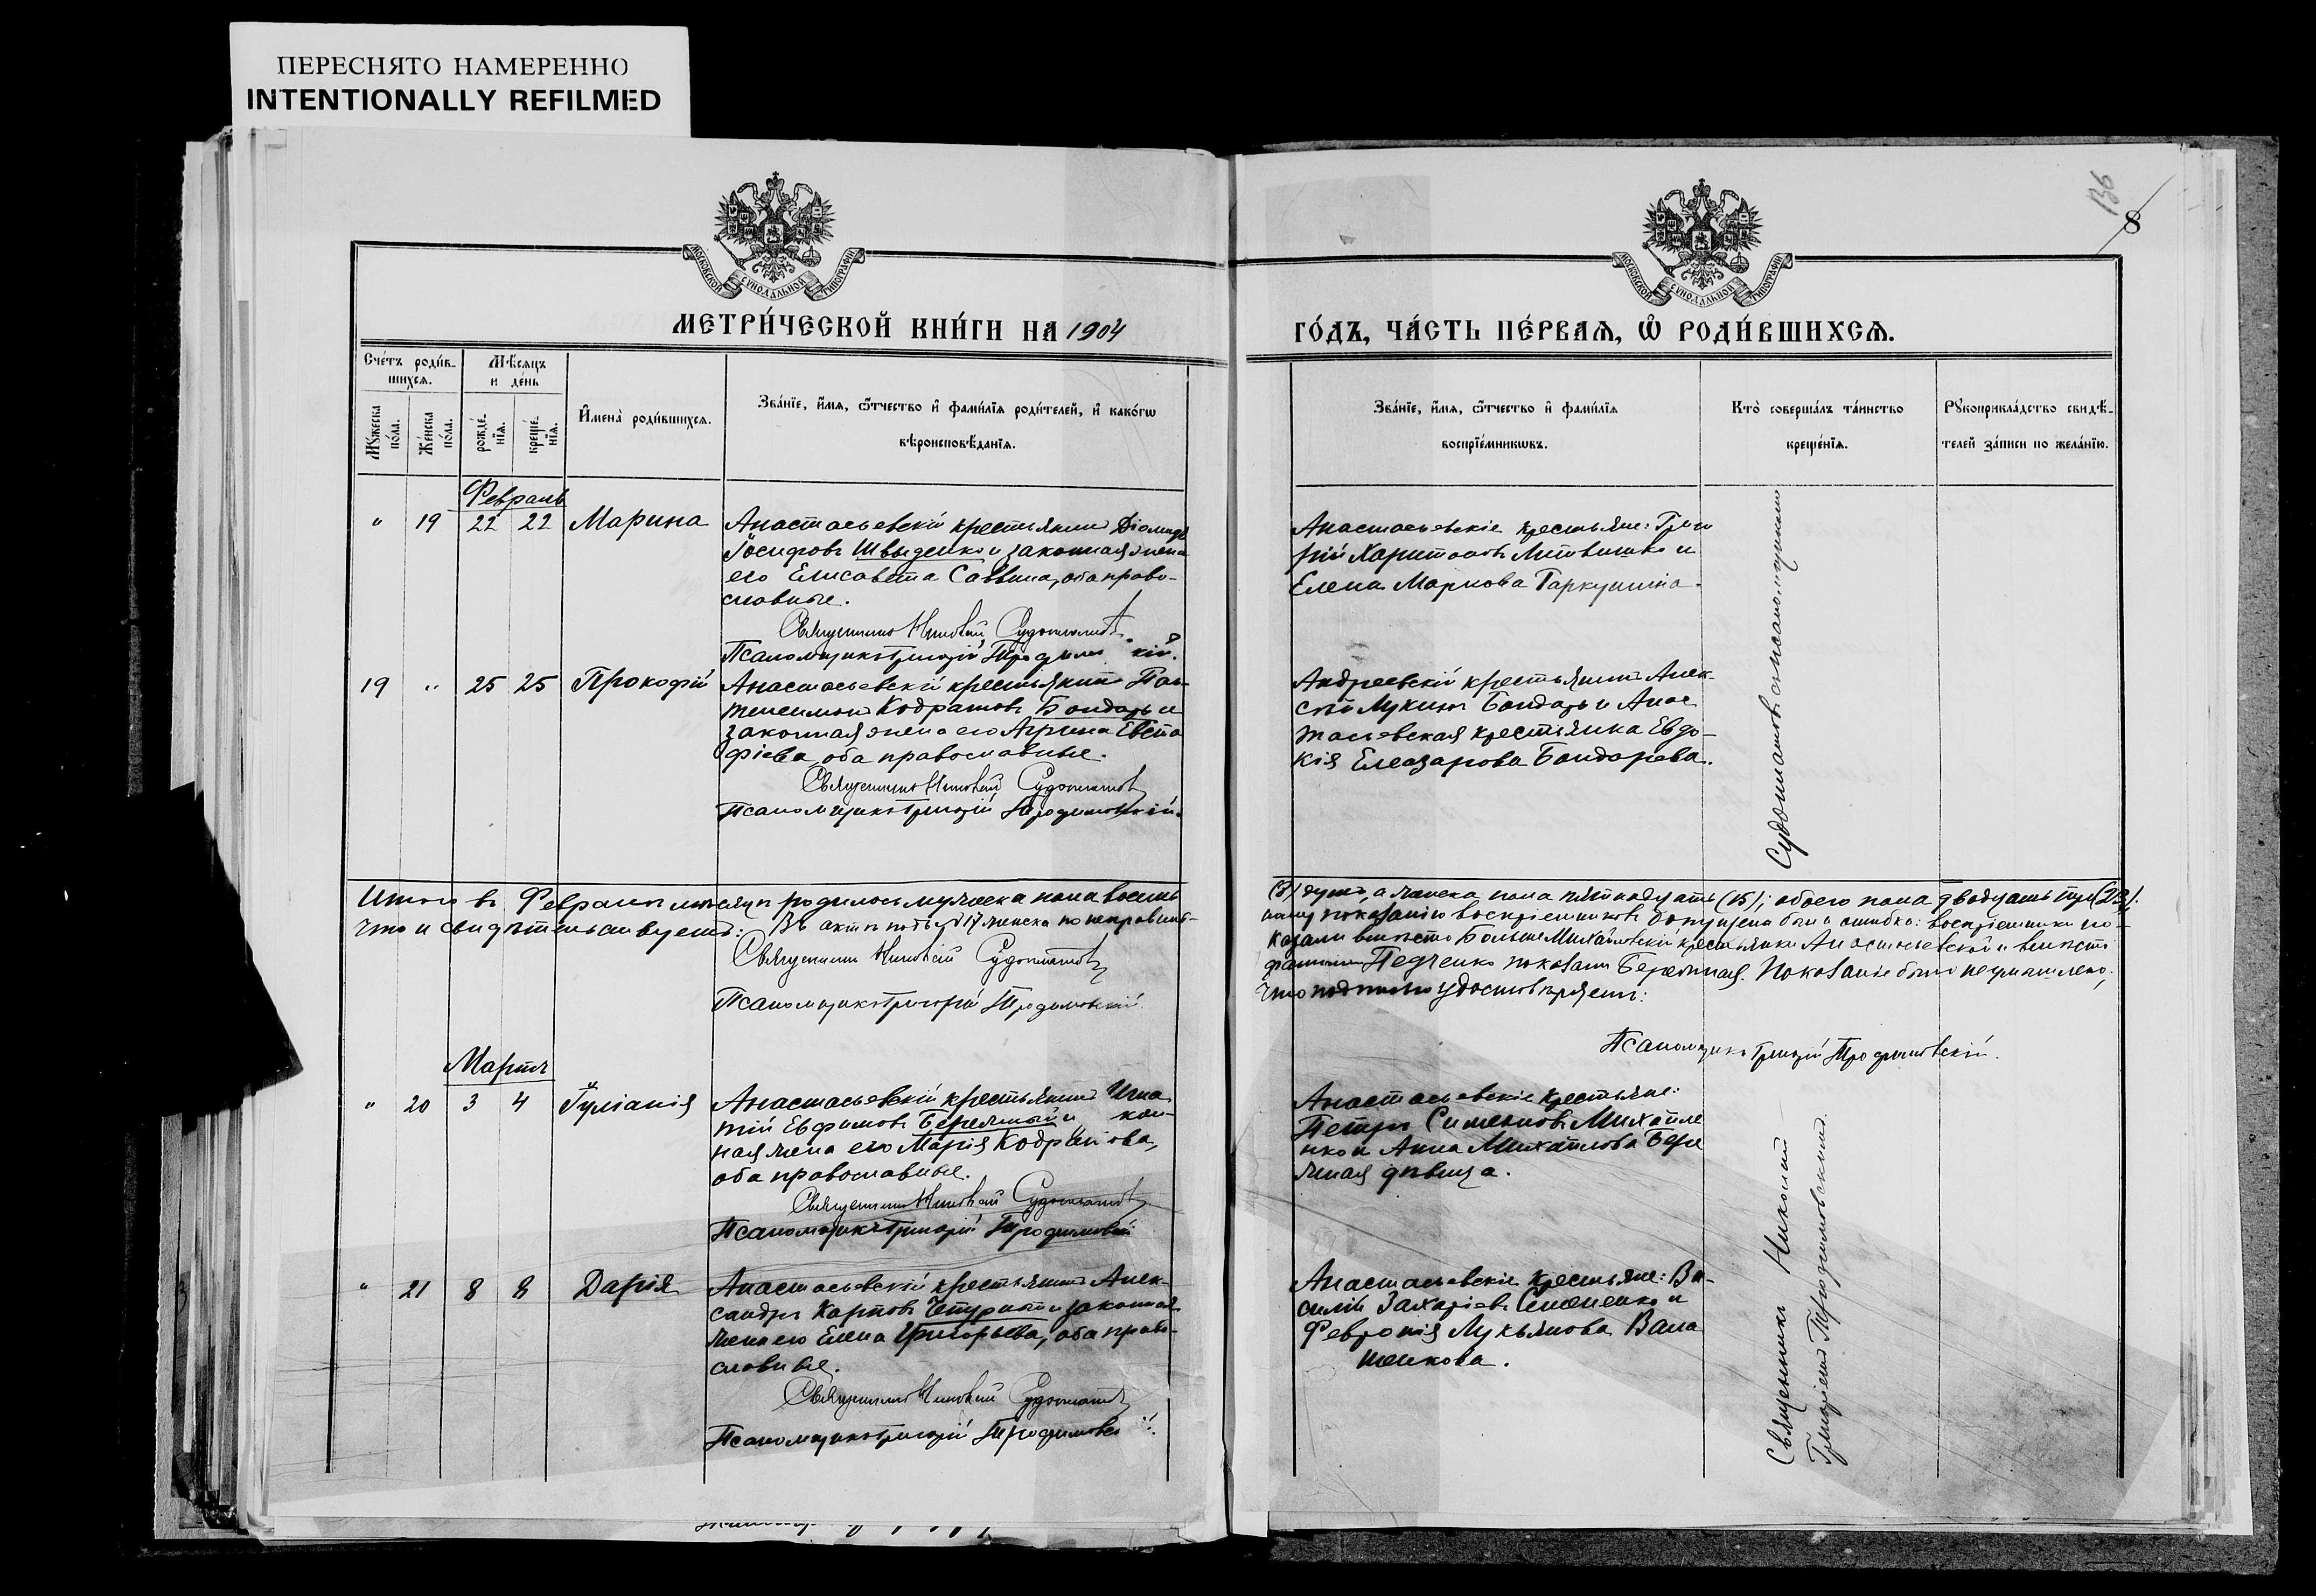 ПЕРЕСНЯТО НАМЕРЕННО
INTENTIONALLY REFILMED
136
8
МОСКОВСКОЙ СѴНОДАЛЬНОЙ ТИПОГРАФІИ
МОСКОВСКОЙ СѴНОДАЛЬНОЙ ТИПОГРАФІИ
МЕТРИ́ЧЕСКОЙ КНИ́ГИ НА 1904
ГО́ДЪ, ЧА́СТЬ ПЕ́РВАѦ, Ѽ РОДИ́ВШИХСѦ.
Сче́тъ роди́в-
шихсѧ.
Мѣ́сѧцъ
и де́нь
Мꙋ́жеска
по́ла.
Же́нска
по́ла.
рожде́-
нїѧ.
креще́-
нїѧ.
И҆мена̀ роди́вшихсѧ.
Зва́нїе, и҆́мѧ, ѻ҆́тчество и҆ фами́лїѧ роди́телей, и҆ како́гѡ
вѣроисповѣ́данїѧ.
Зва́нїе, и҆́мѧ, ѻ҆́тчество и҆ фами́лїѧ
воспрїе́мникѡвъ.
Кто̀ соверша́лъ та́инство
креще́нїѧ.
Рꙋкоприкла́дство свидѣ́-
телей за́писи по жела́нїю.
Февраль
" 19 22 22 Марина
Анастасьевскій крестьянинъ Діомидъ
Іосифовъ Швыденко и законная жена
его Елисавета Саввина, оба право-
славные.
Священникъ Николай Судоплатовъ
Псаломщикъ Григорій
Анастасьевскіе крестьяне: Григо
рій Харитоновъ Литвиненко и
Елена Маркова Гаркушина.
19 " 25 25 Прокофій
Анастасьевскій крестьянинъ Пан-
телеимонъ Кодратовъ Бондарь и
законная жена его Агрипина Евста
фіева, оба православные.
Священникъ Николай Судоплатовъ
Псаломщикъ Григорій Трофимовскій.
Андреевскій крестьянинъ Алек-
сѣй Лукинъ Бондарь и Анас
тасьевская крестьянка Евдо-
кія Елеазарова Бондарева.
Итого въ Февралѣ мѣсяцѣ родилось мужеска пола восемь
(8) душъ, а женска пола пятнадцать (15); обоего пола двадцать три (23).
что и свидѣтельствуемъ: Въ актѣ подъ № 17 женска по неправиль-
ному показанію воспріемниковъ допущена была ошибка: воспріемники по-
казали вмѣсто Больше Михайловской крестьянки Анастасьевской и вмѣсто
фамиліи Педченко показали Бережная. Показаніе было неумышлено,
что подписью удостовѣряемъ:
Священникъ Николай Судоплатовъ
Псаломщикъ Григорій Трофимовскій.
Псаломщикъ Григорій Трофимовскій.
Мартъ
" 20 3 4 Іуліанія
Анастасьевскій крестьянинъ Игна
тій Евфимовъ Бережный и
ная жена его Марія
оба православные.
Священникъ Николай Судоплатовъ
Псаломщикъ Григорій Трофимовскій
Анастасьевскіе крестьяне:
Петръ Симеоновъ Михайле
нко и Анна Михайлова Бере
жная дѣвица.
" 21 8 8 Дарія
Анастасьевскій крестьянинъ Алек-
сандръ Карповъ и законная
жена его Елена Григорьева, оба право-
славные.
Священникъ Николай Судоплатовъ
Псаломщикъ Григорій
Анастасьевскіе крестьяне: Ва-
силій Захаріевъ Семененко и
Февронія Лукьянова Вала
шенкова.
Священникъ Николай Судоплатовъ съ псаломщикомъ
Григоріемъ Трофимовскимъ.